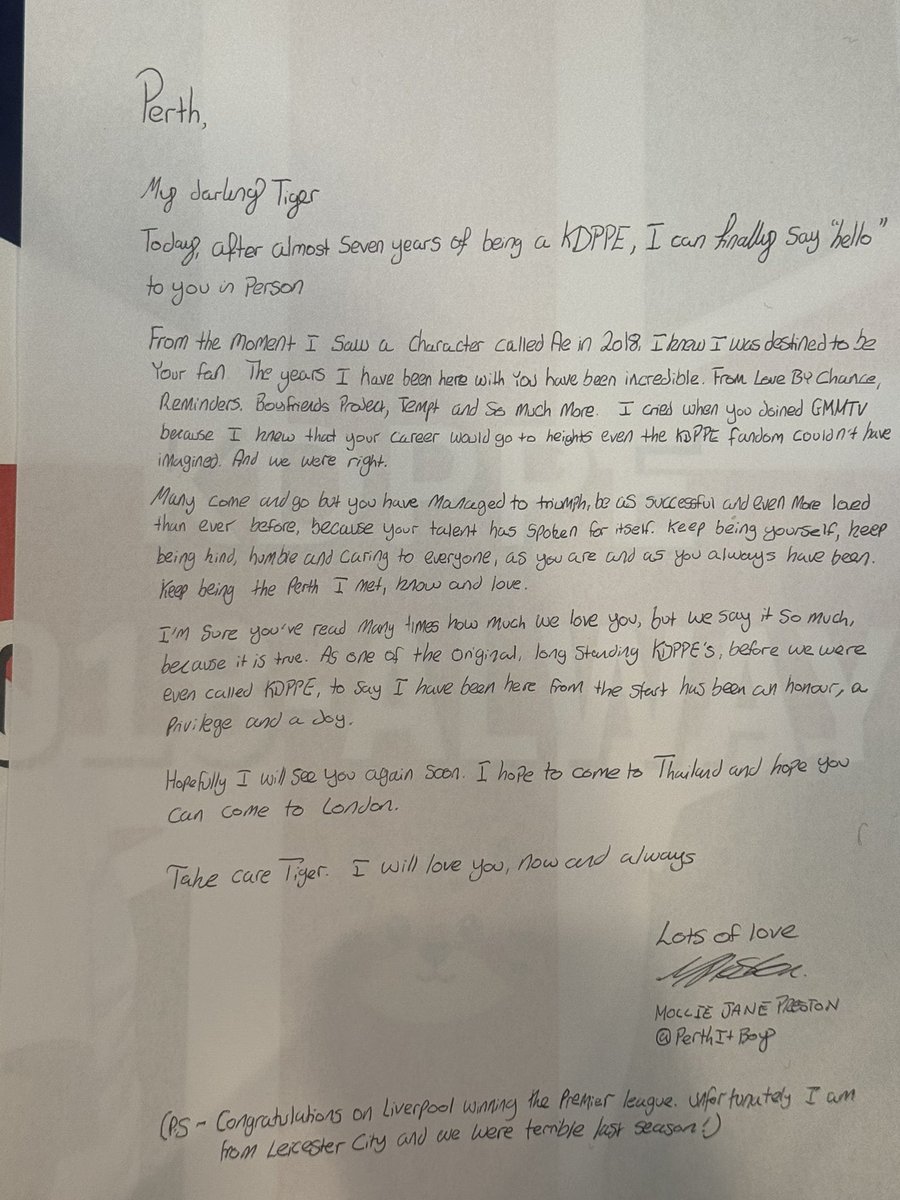 Perth,
My darling Tiger
Today, after almost seven years of being a KDPPE, I can finally say "hello"
to you in person
From the moment I saw a character called Ae in 2018, I knew I was destined to be
your fan. The years I have been here with you have been incredible. From Love By Chance,
Reminders, Boyfriends Project, Tempt and so much more. I cried when you joined GMMTV
because I knew that your career would go to heights even the KDPPE fandom couldn't have
imagined. And we were right.
Many come and go but you have managed to triumph, be as successful and even more loved
than ever before, because your talent has spoken for itself. Keep being yourself, keep
being kind, humble and caring to everyone, as you are and as you always have been.
Keep being the Perth I met, know and love.
I'm sure you've read many times how much we love you, but we say it so much,
because it is true. As one of the original, long standing KDPPE's, before we were
even called KDPPE, to say I have been here from the start has been an honour, a
privilege and a joy.
Hopefully I will see you again soon. I hope to come to Thailand and hope you
can come to London.
Take care Tiger. I will love you, now and always
Lots of love
MOLLIE JANE PRESTON
@PerthItBoy
(PS - Congratulations on Liverpool winning the Premier league. Unfortunately I am
from Leicester City and we were terrible last season!)